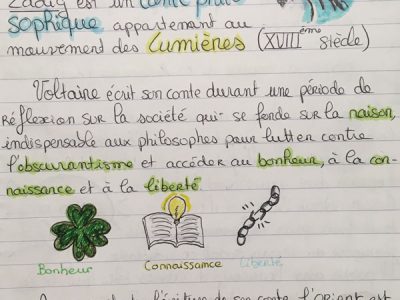 Zadig est un conte philo-
sophique appartenant au
mouvement des Lumières (XVIIIème siècle)
Voltaire écrit son conte durant une période de
réflexion sur la société qui se fonde sur la raison,
indispensable aux philosophes pour lutter contre
l'obscurantisme et accéder au bonheur, à la con-
naissance et à la liberté.
Bonheur Connaissance Liberté
de son conte l'Orient est